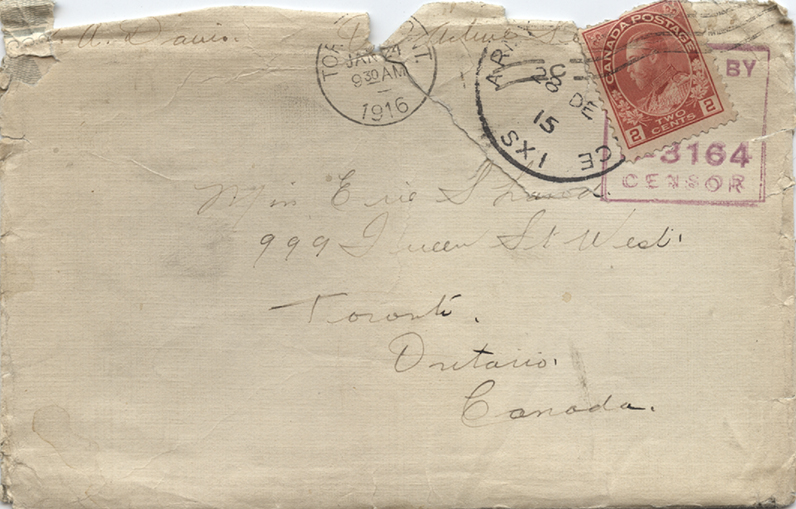 A. Davis.
TOR
NT.
JAN 24
9 30 AM
1916
AR
C
28 DE
15
CE
IXS
CANADA POSTAGE
2 TWO CENTS 2
BY
3164
CENSOR
Miss Evie
999 Queen St West.
Toronto.
Ontario.
Canada.